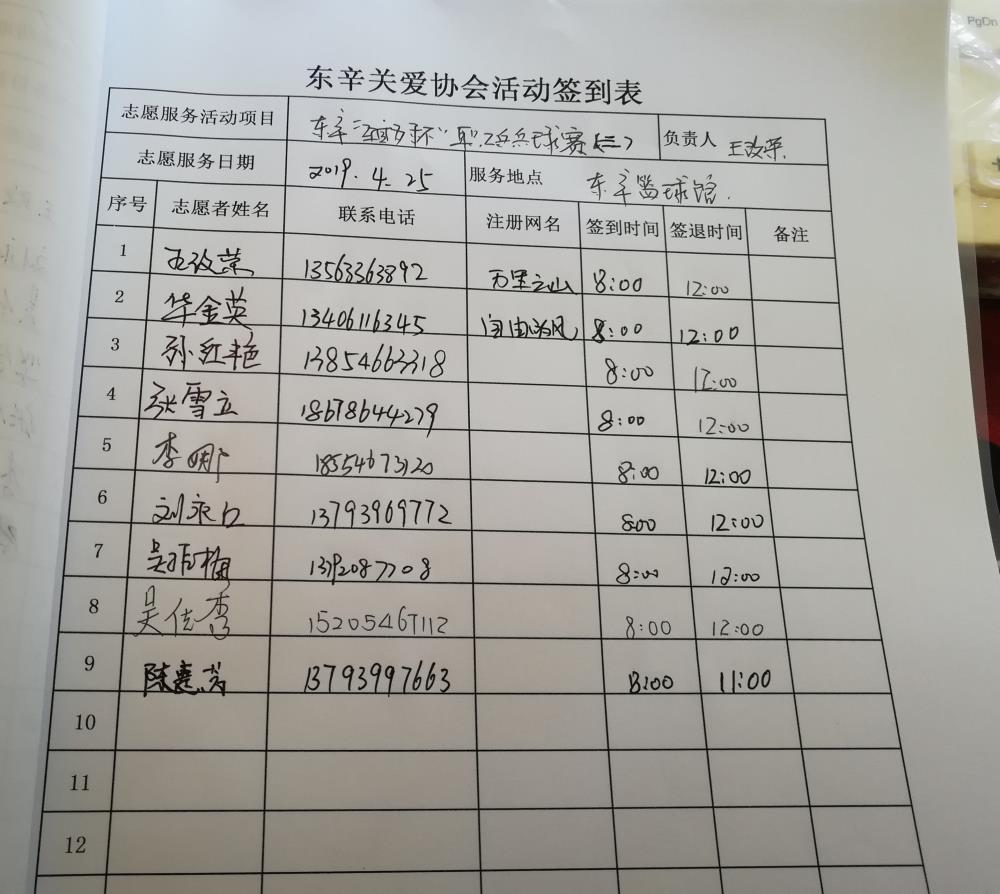 PgDn
东辛关爱协会活动签到表
志愿服务活动项目 东辛 杯"职工乒乓球赛(三) 负责人 王改荣
志愿服务日期 2019.4.25 服务地点 东辛篮球馆.
序号 志愿者姓名 联系电话 注册网名 签到时间 签退时间 备注
1 王改荣 13563363892 万里之山 8:00 12:00
2 华金英 13406116345 自由 风 8:00 12:00
3 孙红艳 13854663318 8:00 12:00
4 张雪立 18678644279 8:00 12:00
5 李娜 18554673120 8:00 12:00
6 刘永 13793969772 8:00 12:00
7 吴 梅 8:00 12:00
8 吴 秀 15205467112 8:00 12:00
9 陈惠芳 13793997663 8:00 11:00
10
11
12